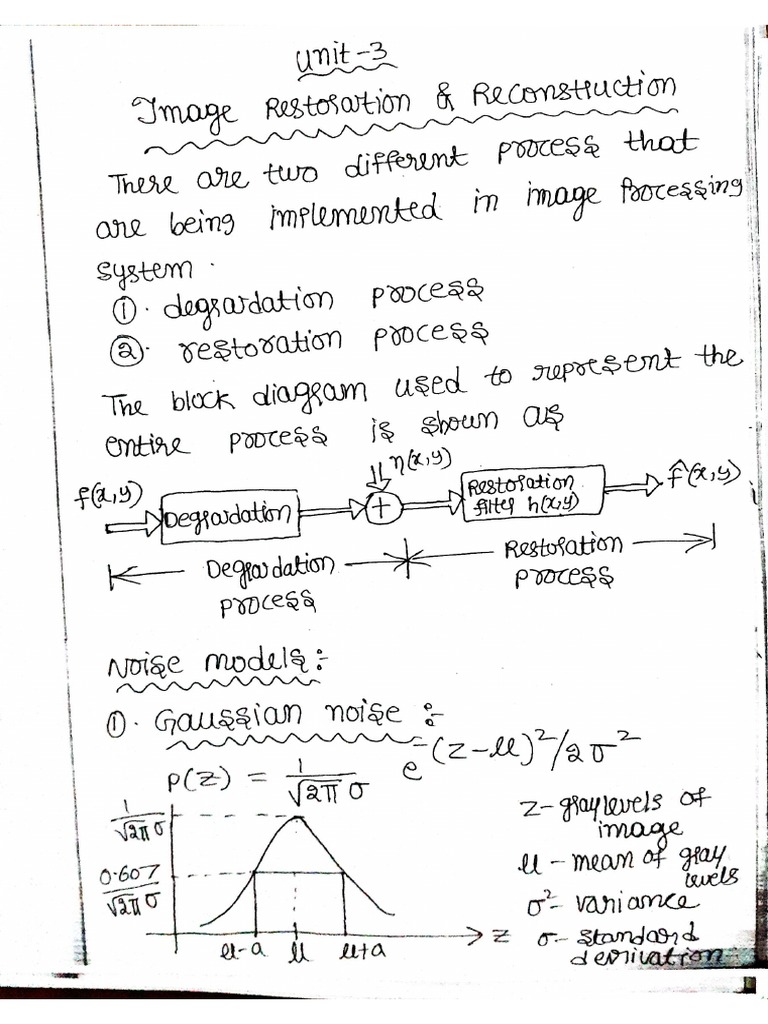 Unit-3
Image Restoration & Reconstruction
There are two different process that
are being implemented in image Processing
system.
①. degardation process
②. restoration process
The block diagram used to represent the
entire process is shown as
f(x,y)
Degardation
+
η(x,y)
Restoration
filter h(x,y)
f̂(x,y)
Degradation
process
Restoration
process
Noise models:-
①. Gaussian noise :-
P(z) = 1/√2π σ e^-(z-μ)²/2σ²
1/√2π σ
0.607/√2π σ
μ-a μ μ+a z
z-gray levels of
image
μ - mean of gray
levels
σ²- variance
σ- standard
derivation